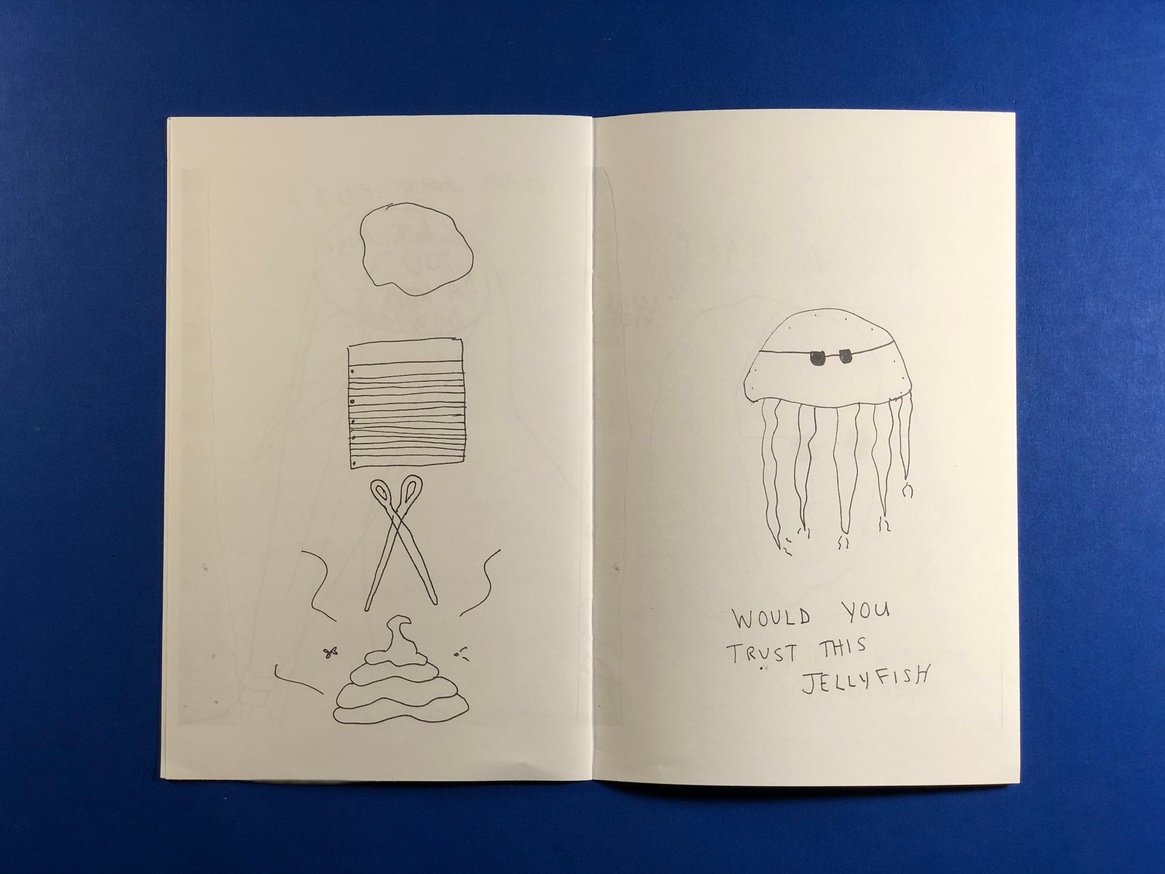 WOULD YOU
TRUST THIS
JELLYFISH